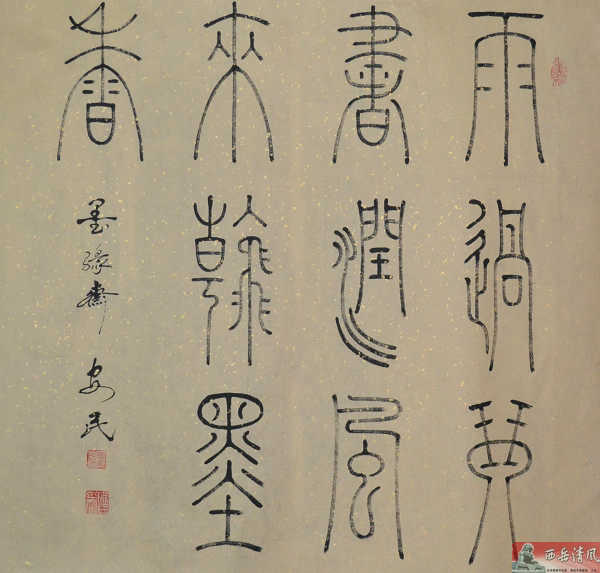 雨過琴
書潤風
來翰墨
香
墨緣齋 安民
西岳清风